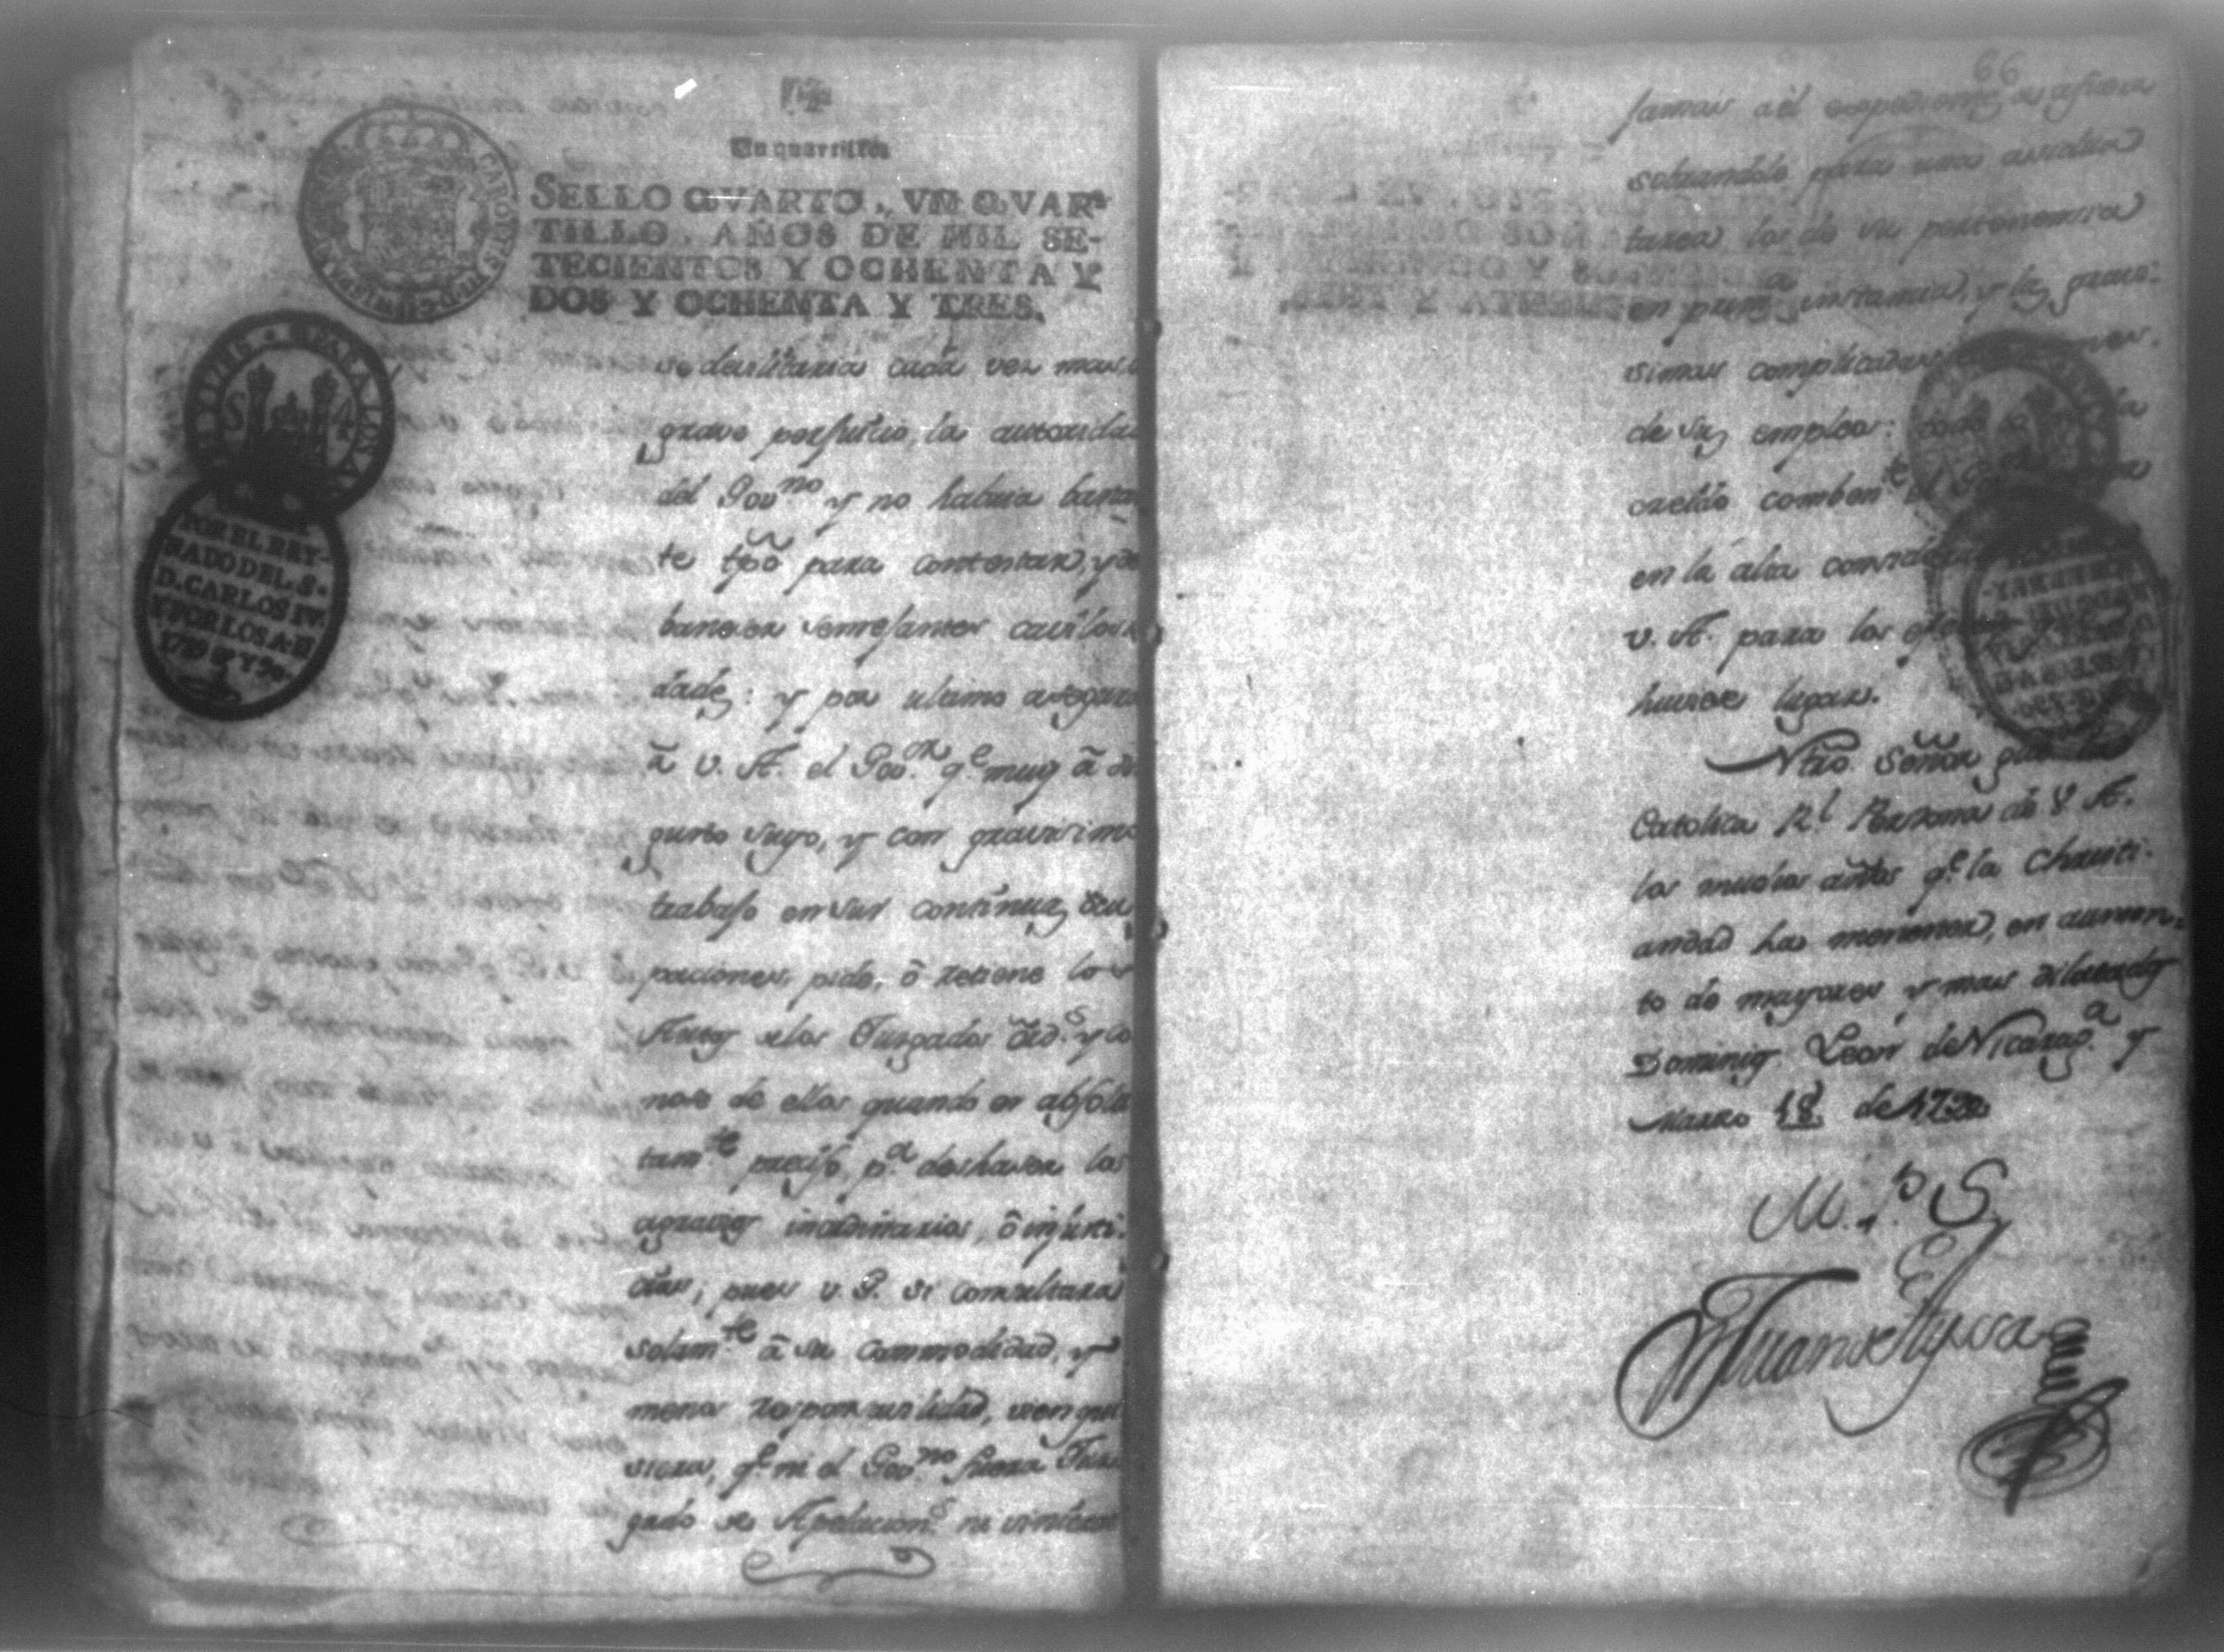 Un quartillo
SELLO QVARTO, VN QVAR-
TILLO, AÑOS DE MIL SE-
TECIENTOS Y OCHENTA Y
DOS Y OCHENTA Y TRES.
CAROLUS
1782 Y 83 PARA LOS A
S 4
POR EL REY-
NADO DEL S.
D. CARLOS IV.
Y POR LOS A. D
1789 Y 90
se devilitaria cada vez mas
grave perjuicio, la autorida
del Gov.no y no habria bastan
te tpõ para contestar, y
semejantes cavilosi
dades: y por ultimo asegura
â V. A. el Gov.or q.e muy â dis
gusto suyo, y con gravisimo
trabajo en sus continuas ocu
paciones, pide, ô retiene los
Autos de los Juzgados ord.s y co
noce de ellos quando es absolu
tam.te preciso p.a deshaser los
agravios ô injusti
cias; pues V. P. si consultara
solam.te â su commodidad, y
menos responsavilidad, vien qui
siera, q.e ni el Gov.no fuera Juz
gado de Apelacion.s ni vinieran
66
jamas aèl
sobrandole para una asidua
tarea los de su pertenencia
en prim.a instancia, y las gravi-
simas complicadas
de sus empleos: todo
creido comben.te
en la alta consideracion
V. A. para los efectos
huviere lugar.
Ntrõ. Señor gue la
Catolica R.l Persona de V. A.
los muchos años q.e la Christi-
andad ha menester, en aumen-
to de mayores y mas dilatados
Dominios. Leon de Nicarag.a y
Marzo 18. de 1790
M. P. S.
Juan de Ayssa